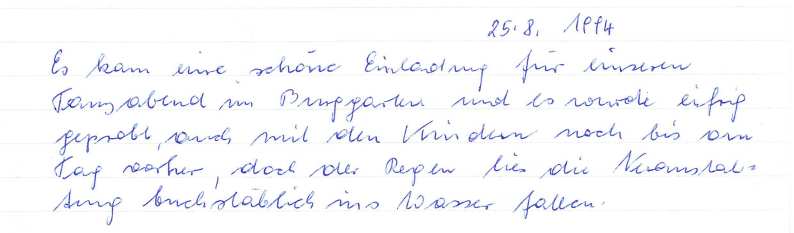 25.8. 1994
Es kam eine schöne Einladung für unseren
Tanzabend im Burggarten und es wurde eifrig
geprobt, auch mit den Kindern noch bis am
Tag vorher, doch der Regen lies die Veranstal=
tung buchstäblich ins Wasser fallen.